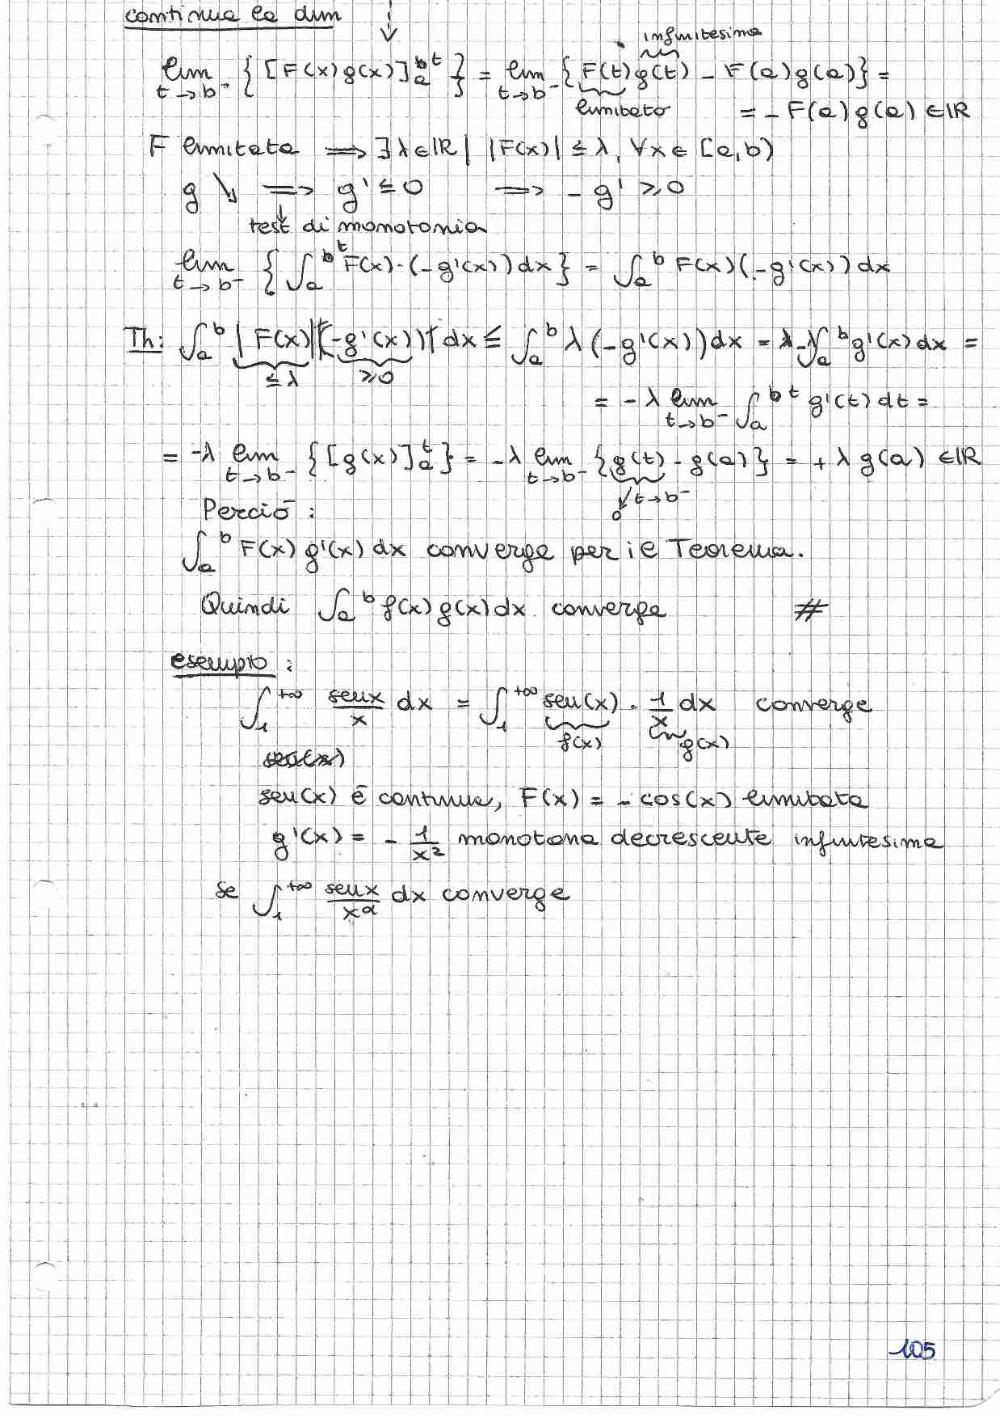 continua la dim
infinitesimo
lim t→b⁻ { [F(x)g(x)]ₐᵗ } = lim t→b⁻ { F(t)g(t) - F(a)g(a) } =
limitato
= - F(a)g(a) ∈ ℝ
F limitata ⟹ ∃ λ∈ℝ | |F(x)| ≤ λ, ∀x ∈ [a,b)
g ↘ ⟹ g' ≤ 0 ⟹ - g' ≥ 0
test di monotonia
lim t→b⁻ { ∫ₐᵗ F(x)·(-g'(x))dx } = ∫ₐᵇ F(x)(-g'(x))dx
Th: ∫ₐᵇ |F(x)|(-g'(x)) dx ≤ ∫ₐᵇ λ(-g'(x))dx = -λ∫ₐᵇ g'(x)dx =
≤ λ ≥ 0
= -λ lim t→b⁻ ∫ₐᵗ g'(t)dt =
= -λ lim t→b⁻ { [g(x)]ₐᵗ } = -λ lim t→b⁻ { g(t) - g(a) } = + λ g(a) ∈ ℝ
↙ t→b⁻
0
Perciò :
∫ₐᵇ F(x)g'(x) dx converge per il Teorema.
Quindi ∫ₐᵇ f(x)g(x)dx converge #
esempio :
∫₁⁺∞ senx/x dx = ∫₁⁺∞ sen(x) · 1/x dx converge
f(x) g(x)
sen(x)
sen(x) è continua, F(x) = - cos(x) limitata
g'(x) = - 1/x² monotona decrescente infinitesima
Se ∫₁⁺∞ senx/xᵅ dx converge
105